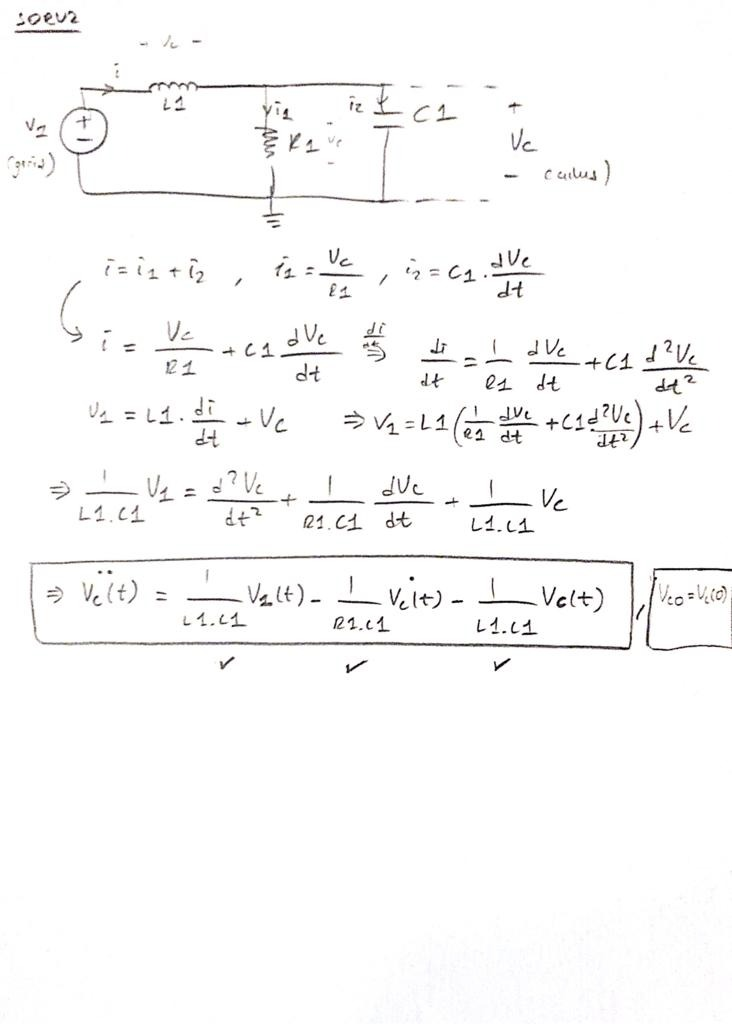 - Vc -
i
L1
i1
i2
C1
+
V1
+
-
R1
Vc
Vc
-
i = i1 + i2 , i1 = Vc/R1 , i2 = C1 . dVc/dt
i = Vc/R1 + C1 dVc/dt di/dt ⇒ di/dt = 1/R1 dVc/dt + C1 d²Vc/dt²
V1 = L1 . di/dt + Vc ⇒ V1 = L1 (1/R1 dVc/dt + C1 d²Vc/dt²) + Vc
⇒ 1/L1.C1 V1 = d²Vc/dt² + 1/R1.C1 dVc/dt + 1/L1.C1 Vc
⇒ V̈c(t) = 1/L1.C1 V1(t) - 1/R1.C1 V̇c(t) - 1/L1.C1 Vc(t) , Vc0 = Vc(0)
✓ ✓ ✓